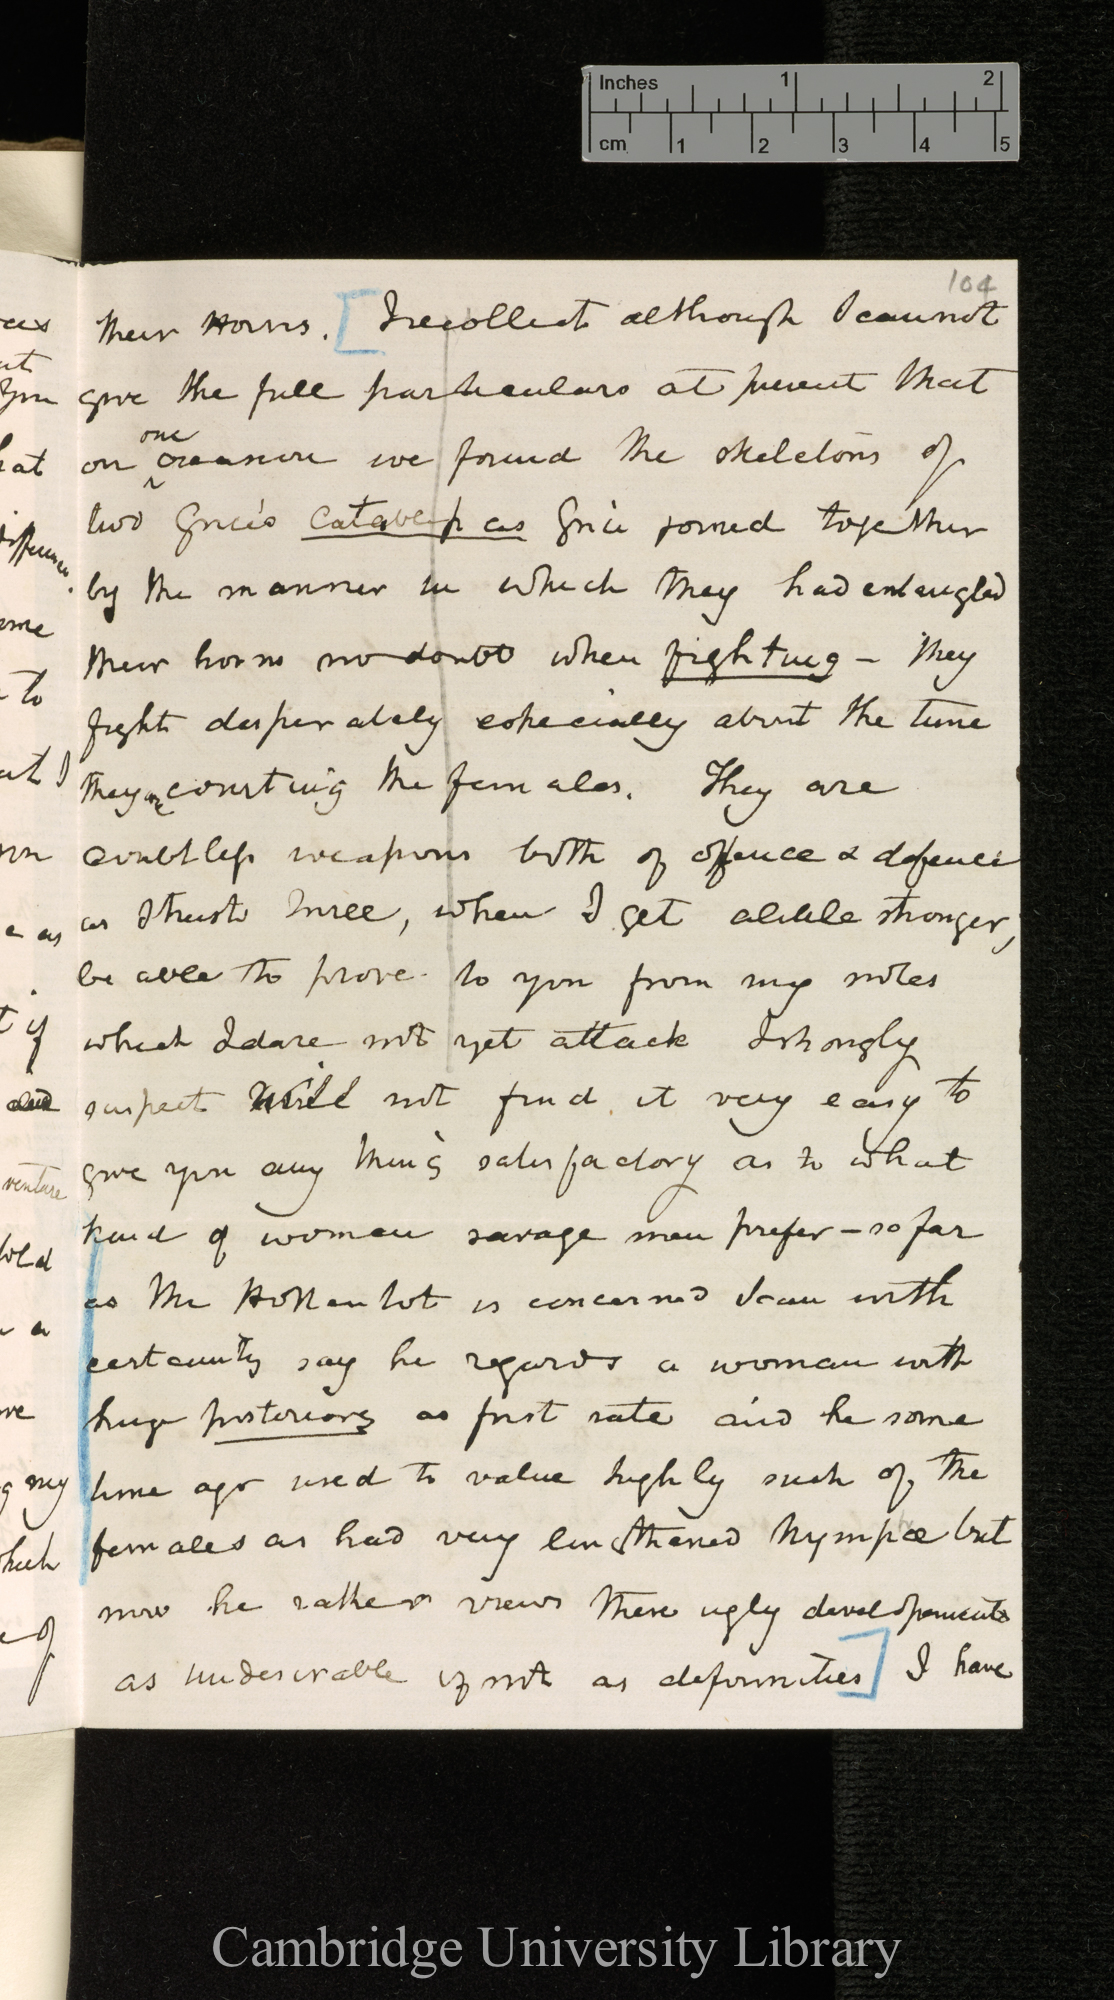 Inches 1 2
cm 1 2 3 4 5
104
their Horns. [I recollect although I cannot
give the full particulars at present that
on one occasion we found the skeletons of
two Gnu's catablepas Gnu joined together
by the manner in which they had entangled
their horns no doubt when fighting – They
fight desperately especially about the time
they are courting the females. They are
doubtless weapons both of offence & defence
as I trust I will, when I get alittle stronger,
be able to prove to you from my notes
which I dare not yet attack I strongly
suspect will not find it very easy to
give you any thing satisfactory as to what
kind of woman savage men prefer – so far
as the Hottentot is concerned I can with
certainty say he regards a woman with
huge posteriors as first rate and he some
time ago used to value highly such of the
females as had very lengthened Nympæ but
now he rather views these ugly developements
as undesirable if not as deformities] I have
at
hat
difference.
ome
to
at I
e as
t if
and
venture
told
a
g my
which
e of
Cambridge University Library